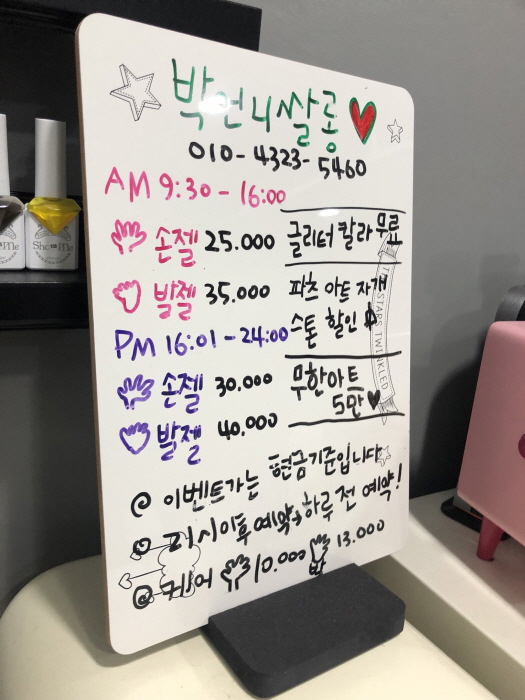 박언니쌀롱
010-4323-5460
AM 9:30 - 16:00
손젤 25.000
글리터 칼라 무료
발젤 35.000
파츠 아트 자개
스톤 할인
PM 16:01 - 24:00
손젤 30.000
무한아트
5만
발젤 40.000
이벤트가는 현금기준입니다
시이후 예약→하루 전 예약!
케어 10.000 발 13.000
STARS TWINKLED
She Me